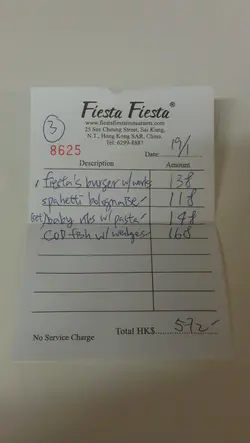 Fiesta Fiesta®
www.fiestafiestarestaurant.com
25 See Cheung Street, Sai Kung,
N.T., Hong Kong SAR, China.
Tel: 6299-8887
3
8625
Date: 19/1
Description Amount
1 fiesta's burger w/ works 138
spahetti bolognaise 118
(set) baby ribs w/ pasta 148
COD fish w/ wedges 168
No Service Charge
Total HK$ 572